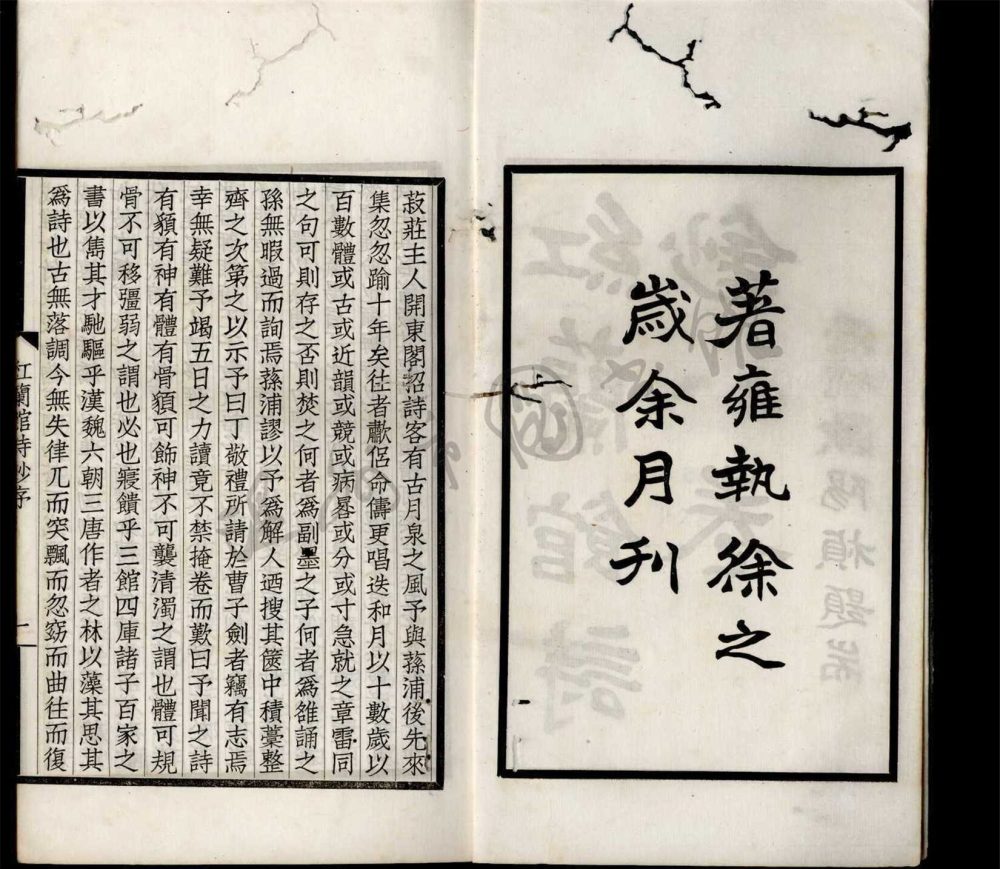 著雍執徐之
歲余月刊
菽莊主人開東閣詔詩客有古月泉之風予與蓀浦後先來
集忽忽踰十年矣往者歗侶命儔更唱迭和月以十數歲以
百數體或古或近韻或競或病晷或分或寸急就之章雷同
之句可則存之否則焚之何者為副墨之子何者為雒誦之
孫無暇過而詢焉蓀浦謬以予為解人迺搜其篋中積藁整
齊之次第之以示予曰丁敬禮所請於曹子劍者竊有志焉
幸無疑難予竭五日之力讀竟不禁掩卷而歎曰予聞之詩
有額有神有體有骨額可飾神不可襲清濁之謂也體可規
骨不可移彊弱之謂也必也寢饋乎三館四庫諸子百家之
書以雋其才馳驅乎漢魏六朝三唐作者之林以藻其思其
為詩也古無落調今無失律兀而突飄而忽窈而曲往而復
紅蘭館詩鈔序
一